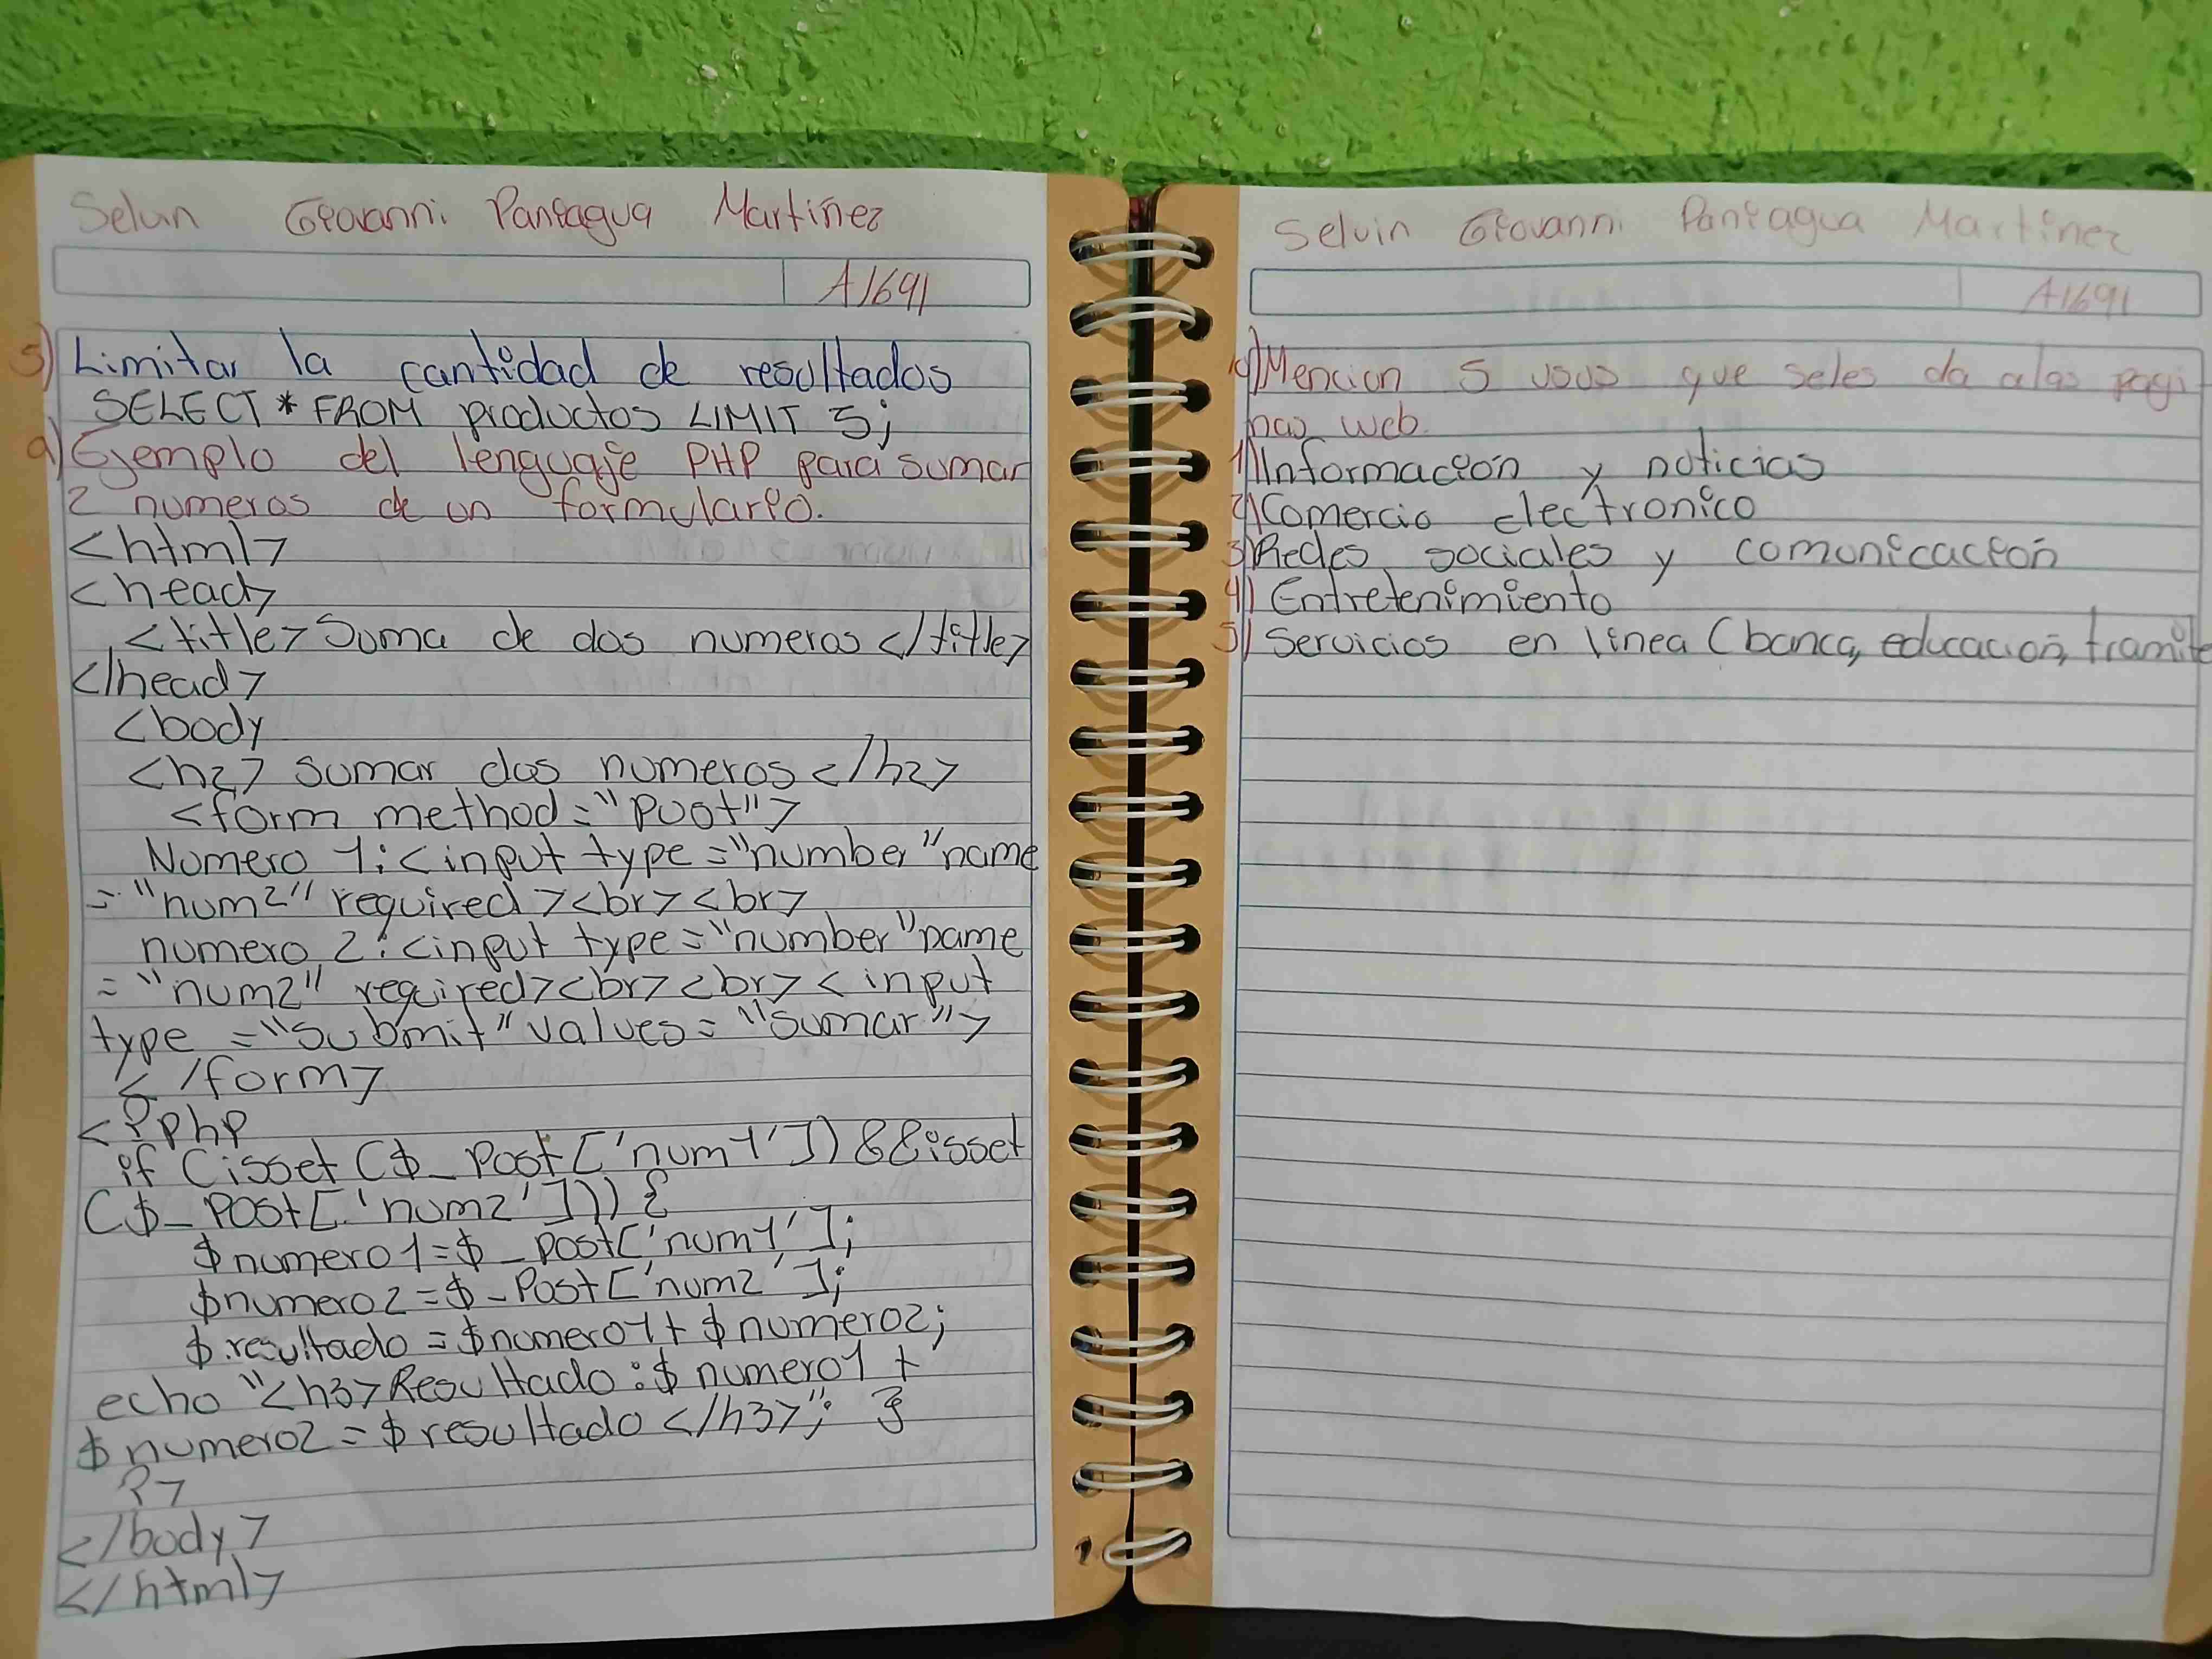 Selvin Giovanni Paniagua Martinez
A1691
5) Limitar la cantidad de resultados
SELECT * FROM productos LIMIT 5;
9) Ejemplo del lenguaje PHP para sumar
2 numeros de un formulario.
<html>
<head>
<title> Suma de dos numeros </title>
</head>
<body
<h2> sumar dos numeros </h2>
<form method="post">
Numero 1: <input type="number" name
="num2" required ><br><br>
numero 2: <input type="number" name
="num2" required><br><br>< input
type ="submit" values="sumar">
< /form>
<?php
if (isset ($_Post['num1']) && isset
($_Post['num2'])) {
$numero1=$_post['num1'];
$numero2=$_Post['num2'];
$resultado=$numero1+$numero2;
echo "<h3>Resultado:$numero1 +
$numero2=$resultado </h3>"; }
?>
</body>
</html>
Selvin Giovanni Paniagua Martinez
A1691
10) Mencion 5 usos que seles da alas pagi
nas web.
1) Informacion y noticias
2) Comercio electronico
3) Redes sociales y comunicacion
4) Entretenimiento
5) Servicios en linea (banca, educacion, tramite